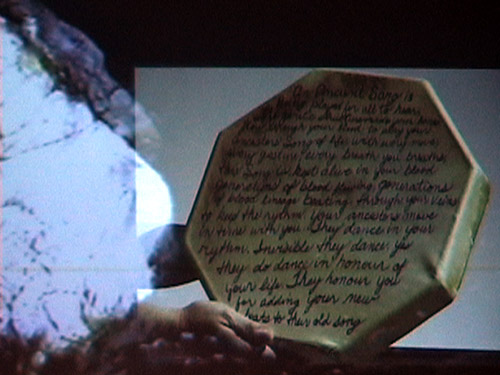 An Ancient Song is
being played for all to hear,
flow through your blood to play your
Ancestors song of life with every move,
every gesture, every breath you breathe,
this song is kept alive in your blood
generations of blood flowing, generations
of blood lineage beating through your veins
to keep the rhythm. Your ancestors move
in time with you. They dance in your
rhythm. Invisible they dance, yes
they do dance in honour of
your life. They honour you
for adding your new
beats to their old song